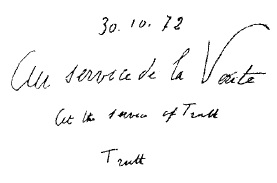 30.10.72
Au service de la Vérité
At the service of Truth
Truth